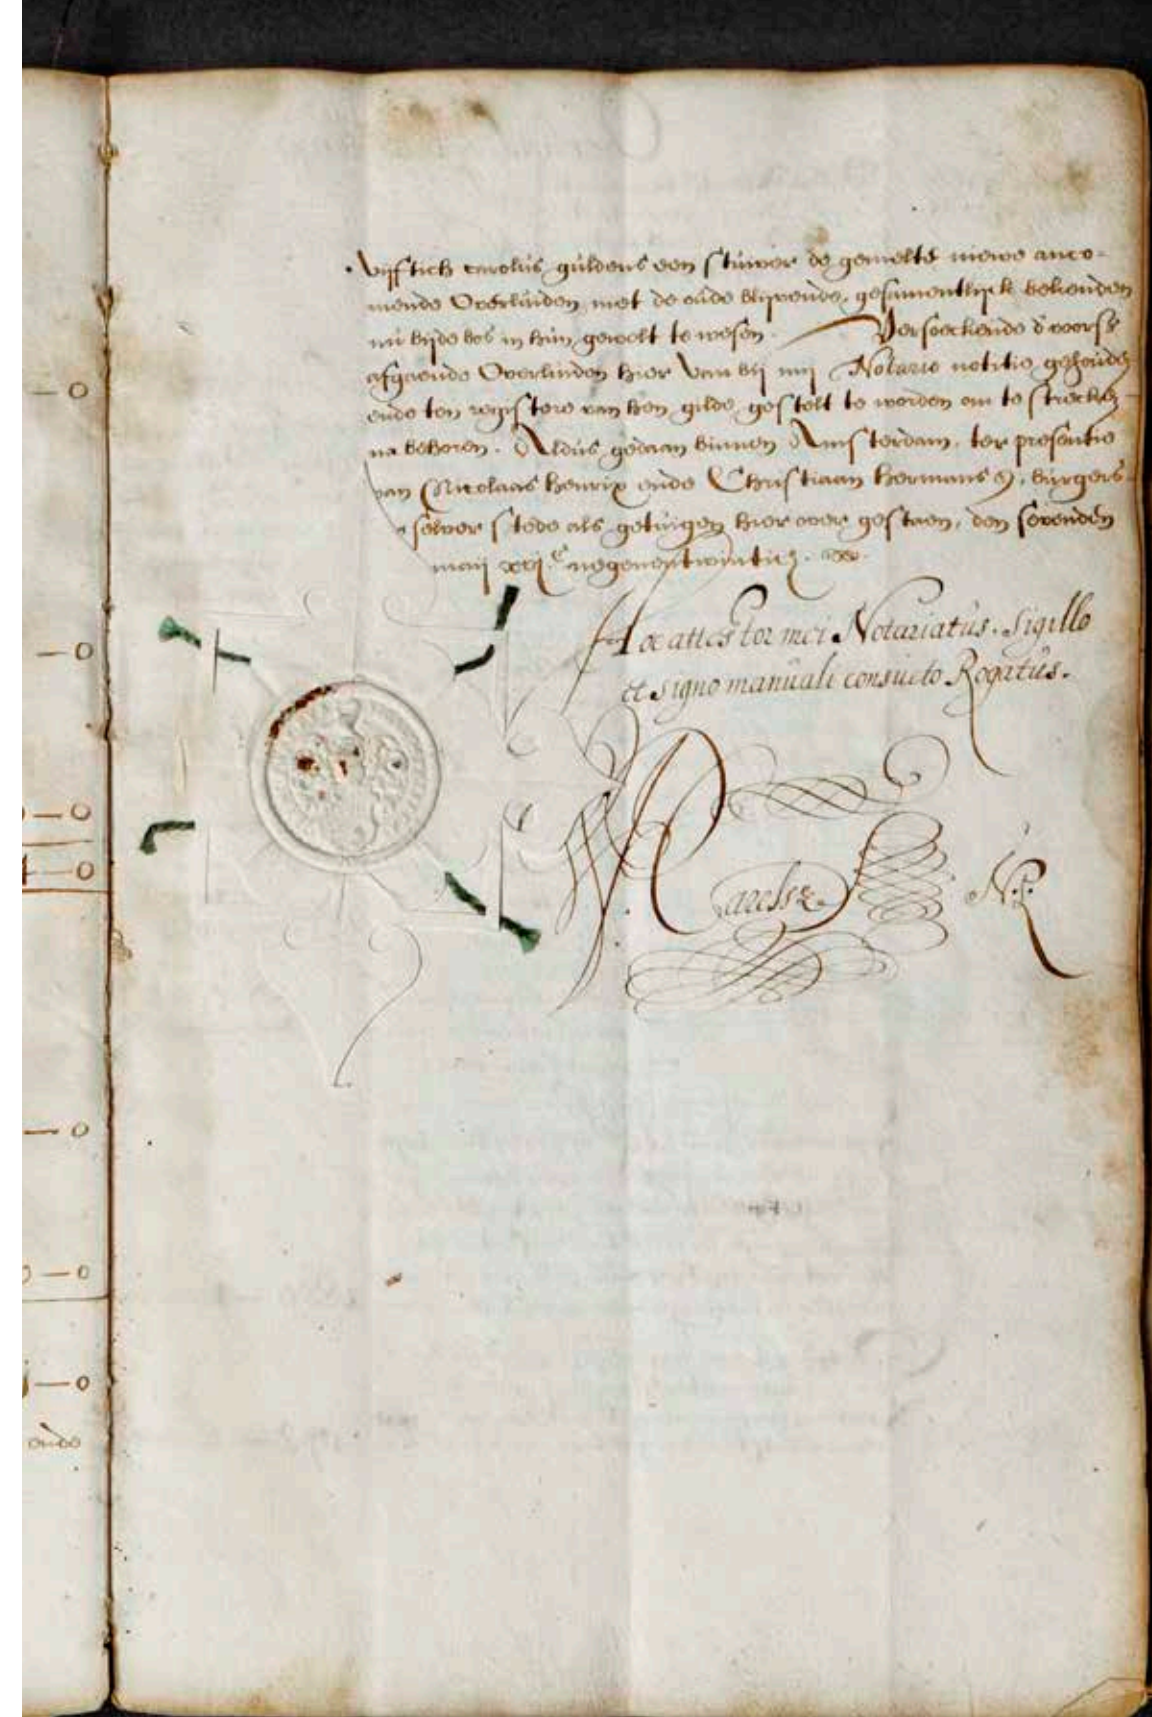 vijftich carolus guldens een stuiver de gemelte niewe anco-
mende Overluiden met de oude blijvende, gesamentlijck bekenden
nu bijde bos in hun gewelt te wesen. Versoeckende d'voorsz
afgaende Overluiden hier van bij mij Notario notitie gehouden
ende ten registere van hen gilde gestelt te worden om te strecken
na behoren. Aldus gedaan binnen Amsterdam, ter presentie
van Nicolaas Henrix ende Christiaan Hermansz, burgers
selver stede als getuigen hier over gestaen, den sevenden
maij xvj.c negenentwintich.
Hoc attestor mei Notariatus. Sigillo
et signo manuali consueto Rogatus.
N.P.
— 0
— 0
— 0
— 0
— 0
— 0
— 0
ende